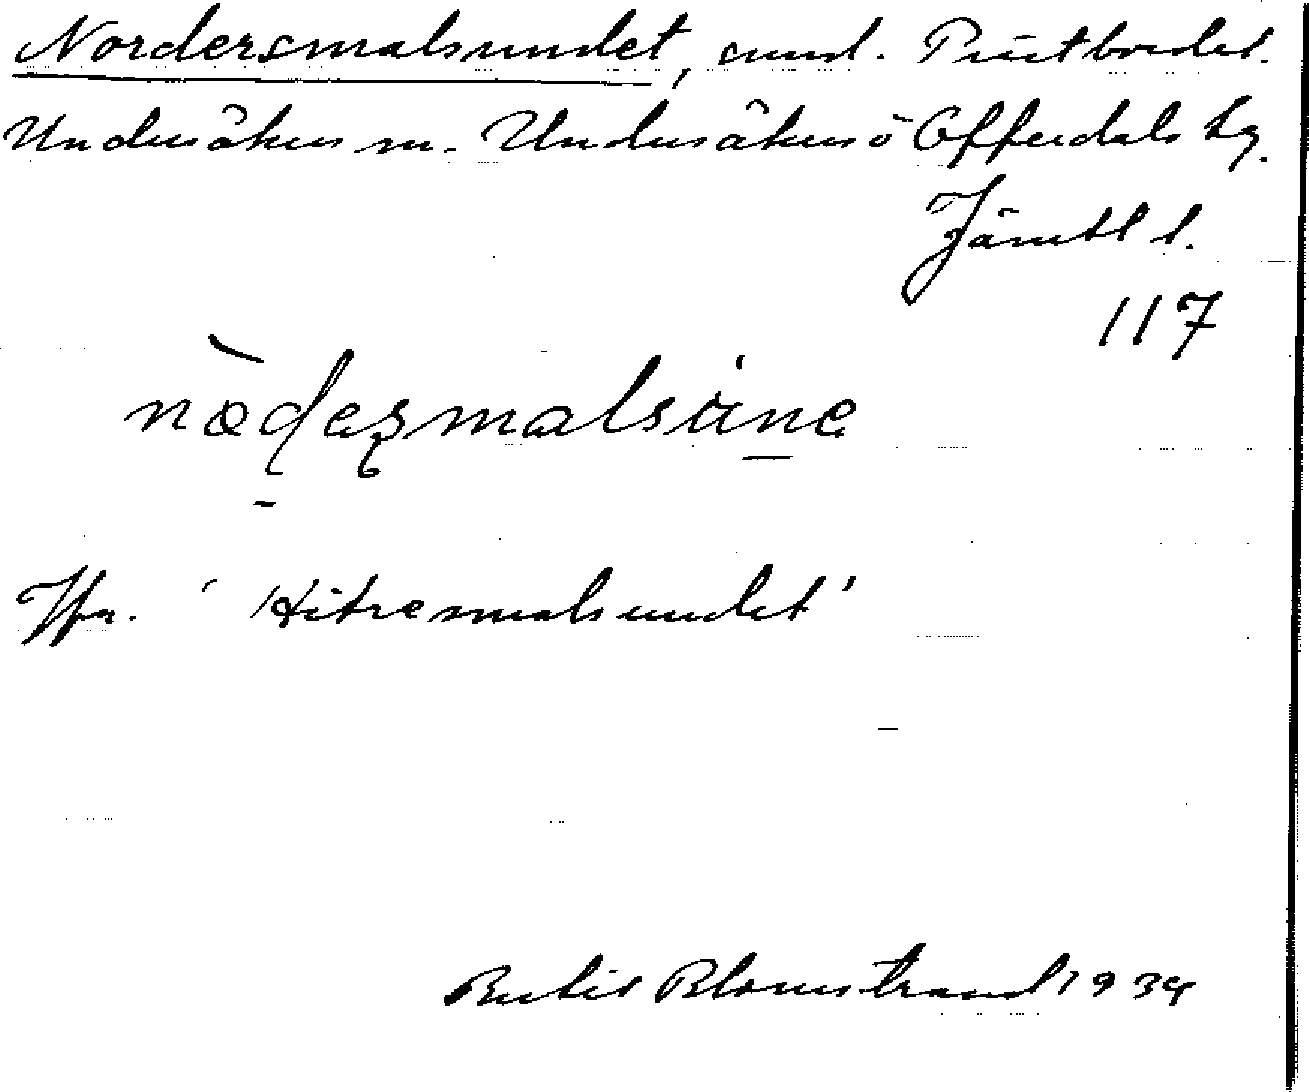 Nordersmalsundet, sund. Prästbordet.
Undersåkers sn. Undersåkers o Offerdals tg.
Jämtl l.
117
næḍeʂmalsūne
Jfr. 'Hitresmalsundet'
Bertil Blomstrand 1934